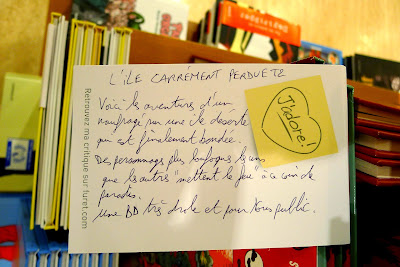 L'ÎLE CARRÉMENT PERDUE T2
Voici les aventures d'un
naufragé sur une île déserte
qui est finalement bondée.
Des personnages plus loufoques les uns
que les autres "mettent le feu" à ce coin de
paradis.
Une BD très drôle et pour tous public.
J'adore!
Retrouvez ma critique sur furet.com